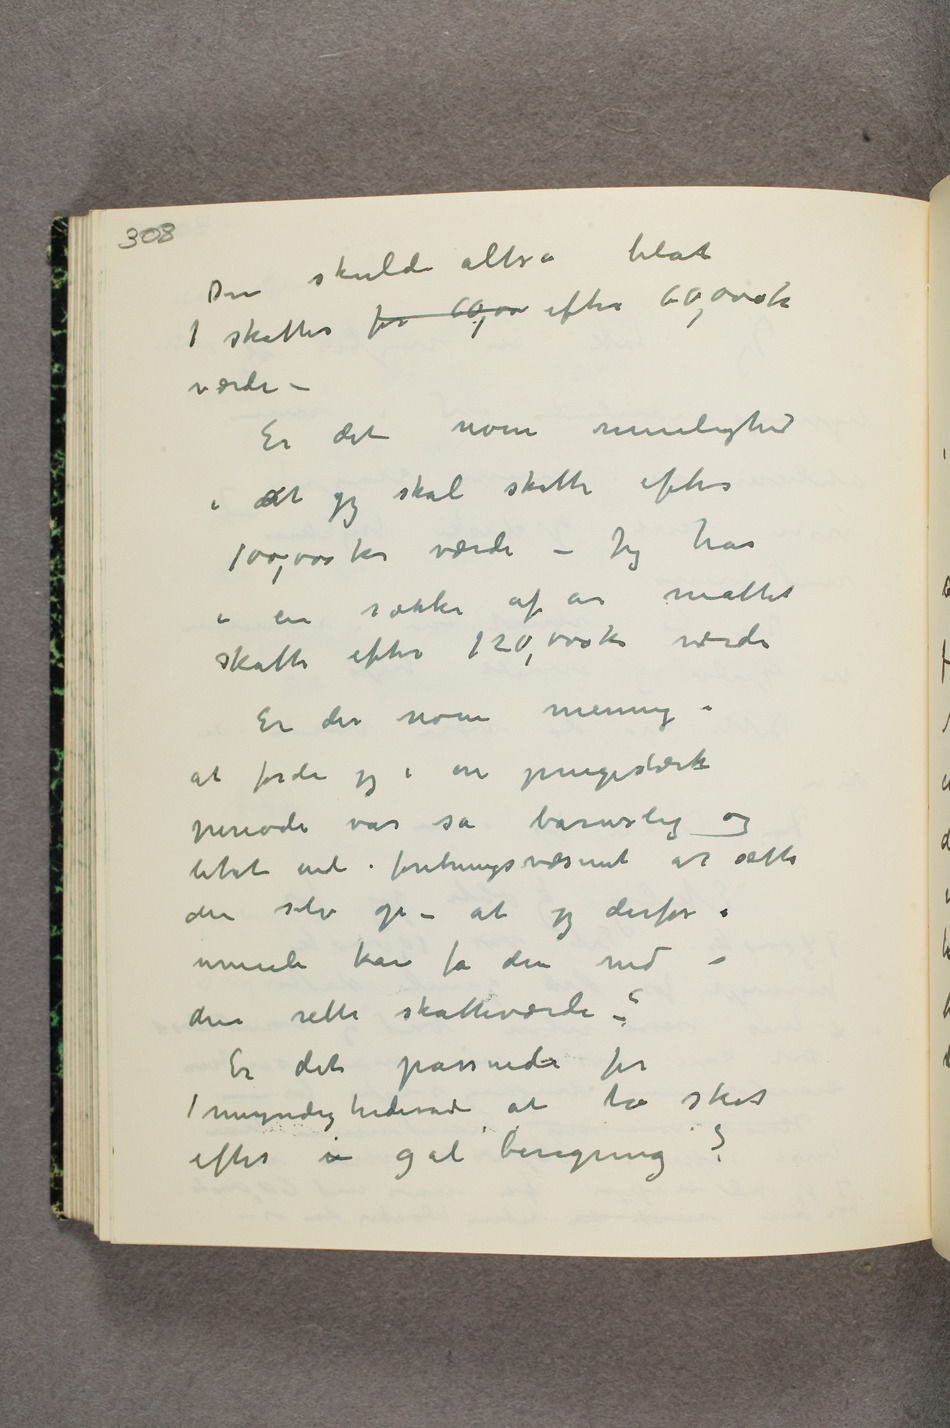 308
Den skulde altså blot
| skattes for 60,00 efter 60,000k
værdi –
Er det noen rimelighed
i at jeg skal skatte efter
100,000 kr værdi – Jeg har
i en række af år måttet
skatte efter 120,000k værdi
Er der noen mening i
at fordi jeg i en pengestærk
periode var så barnslig og
litet ind i foretningsvæsenet at sætte
den selv op – at jeg derfor i
umulig kan få den ned i
den rette skatteværdi –?
Er det passende for
| myndighederne at ta skat
efter en gal beregning ?